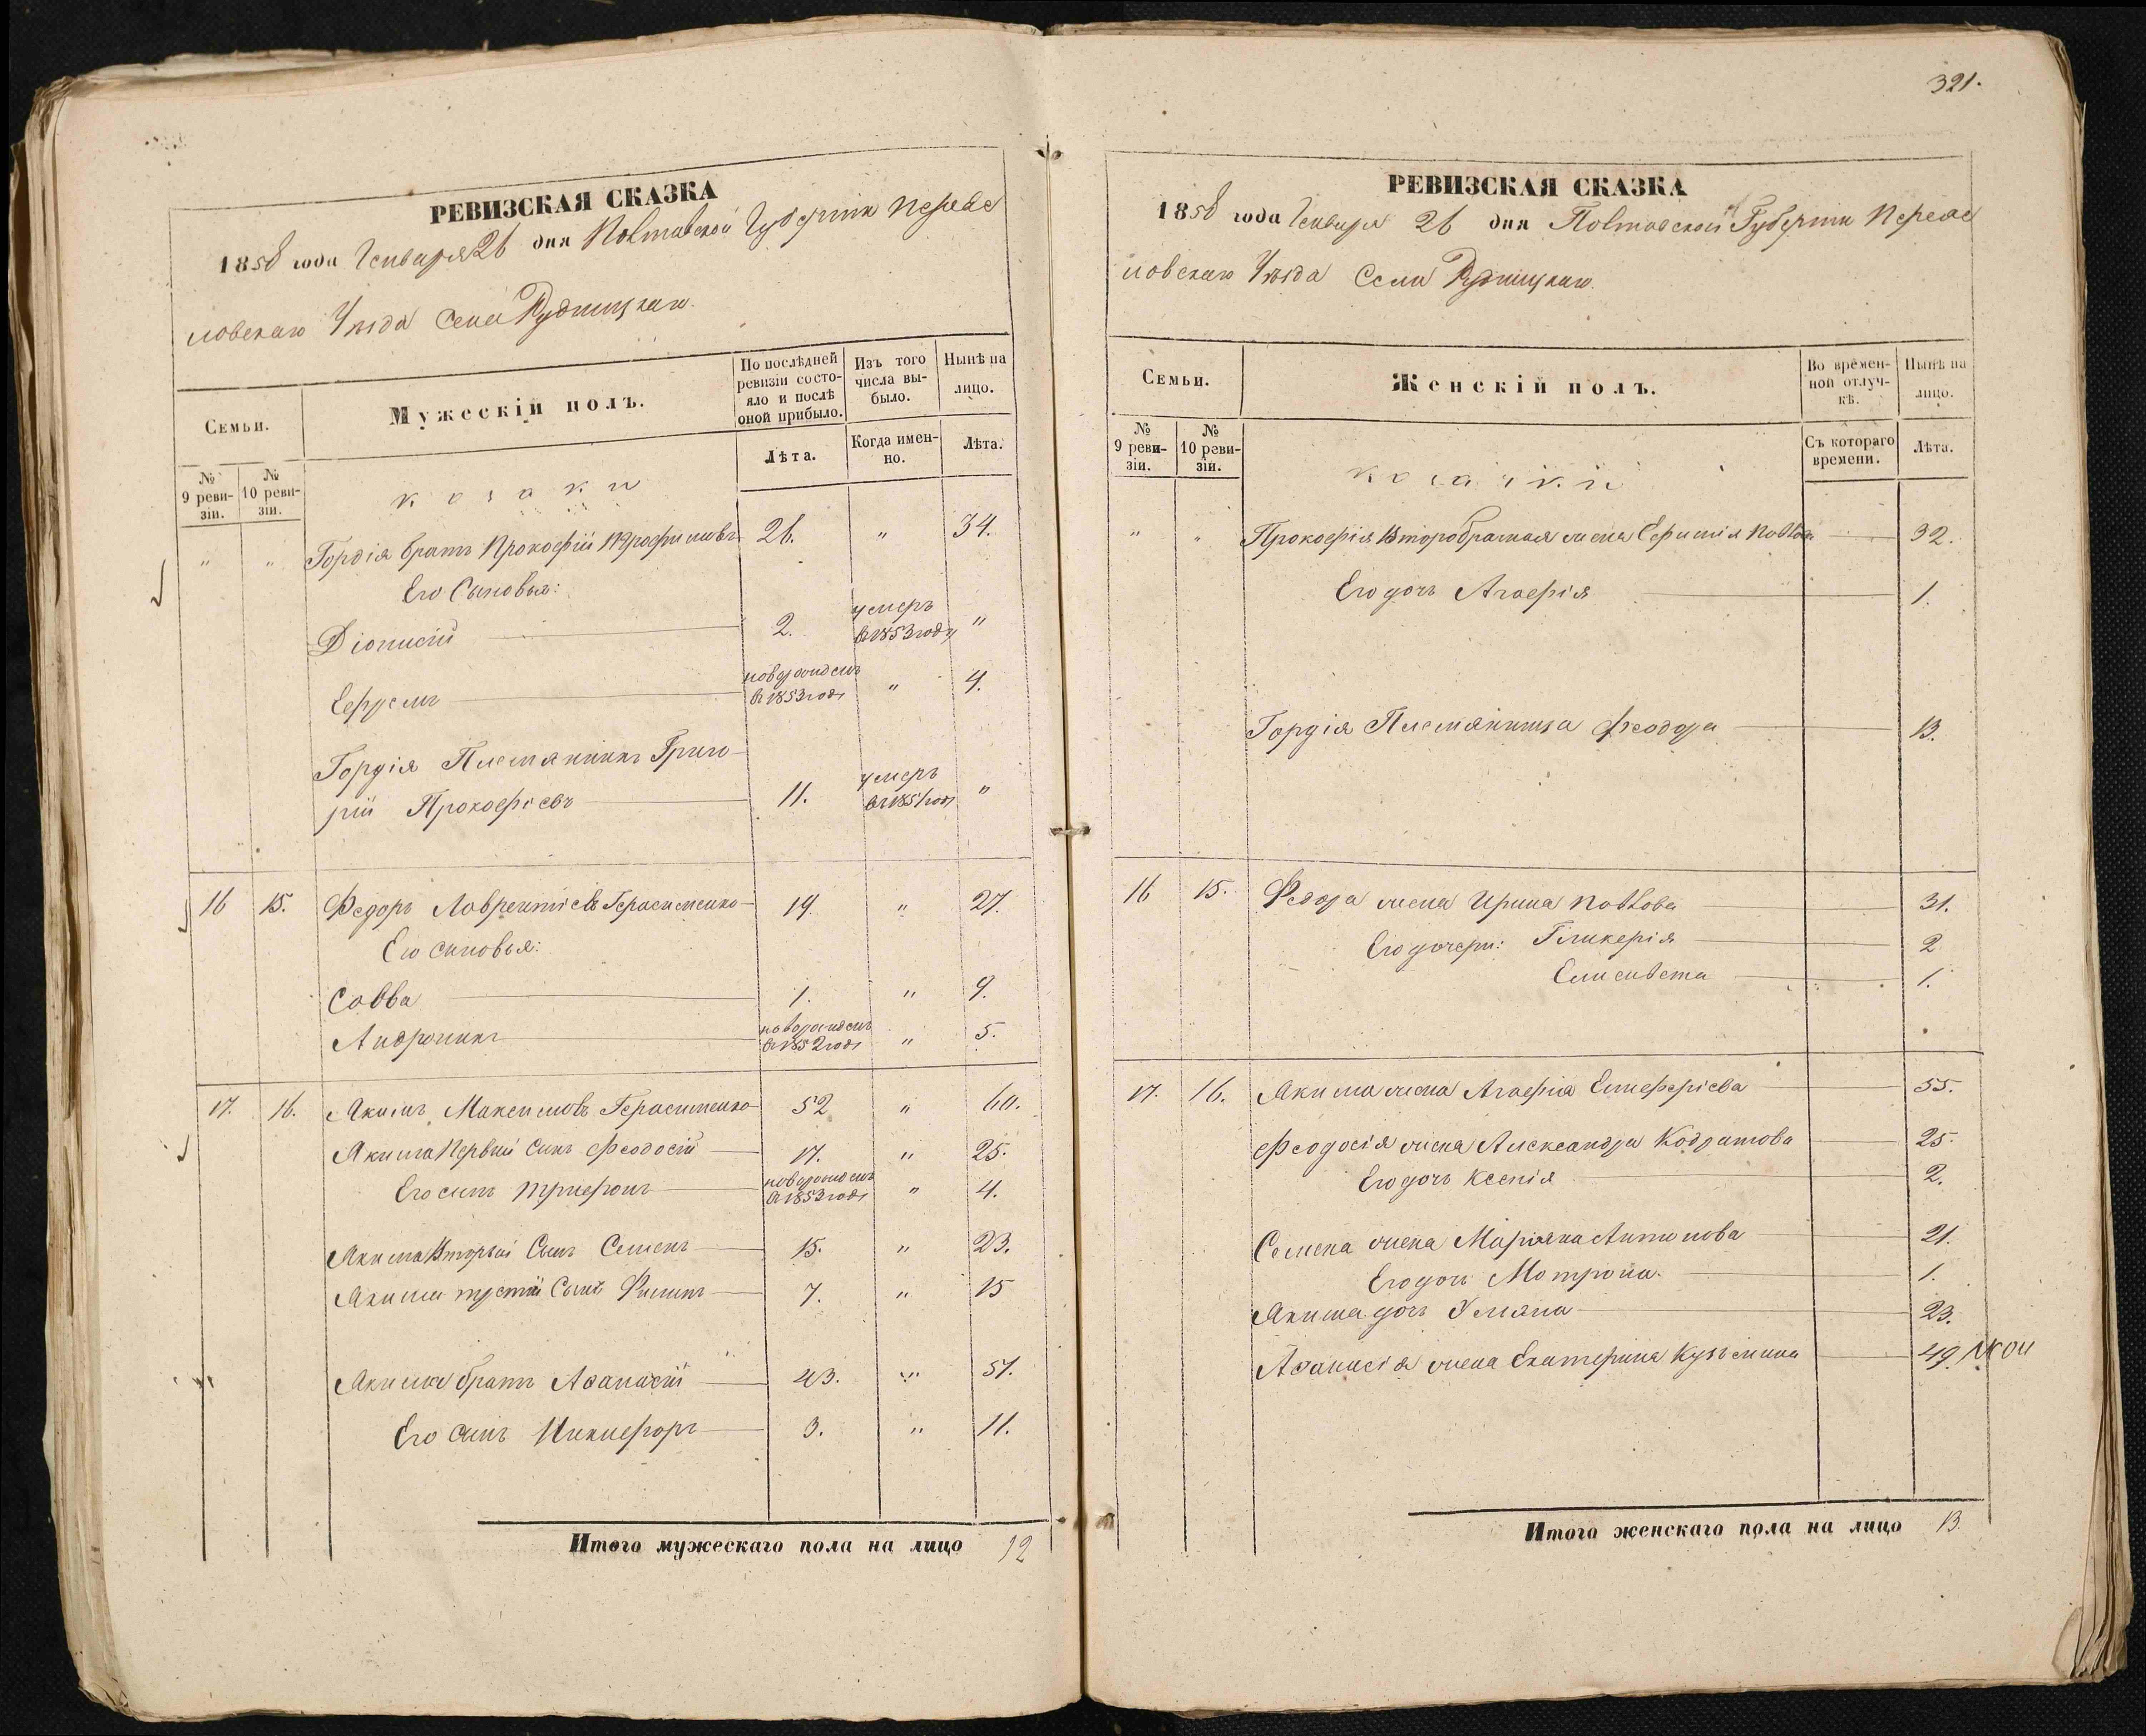 321.
РЕВИЗСКАЯ СКАЗКА
1858 года Генваря 26 дня Полтавской Губерніи Переяс
ловскаго Уѣзда Села Рудницкаго.
Семьи.
Мужескій полъ.
По послѣдней ревизіи состояло и послѣ оной прибыло.
Изъ того числа выбыло.
Нынѣ на лицо.
№ 9 ревизіи.
№ 10 ревизіи.
козаки
Лѣта.
Когда именно.
Лѣта.
" " Гордія братъ Прокофій Трофимовъ 26. " 34.
Его Сыновья:
Діонисій 2. умеръ в 1853 году "
Ефремъ новорожденъ в 1853 годѣ " 4.
Гордія Племянникъ Григо-
рій Прокофіевъ 11. умеръ в 1851 годѣ "
16 15. Федоръ Лаврентіевъ Герасименко 19. " 27.
Его сыновья:
Савва 1. " 9.
Андроникъ новорожденъ в 1852 годѣ " 5.
17. 16. Якимъ Максимовъ Герасименко 52 " 60.
Якима Первый сынъ Феодосій 17. " 25.
Его сынъ Трифонъ новорожденъ в 1853 годѣ " 4.
Якима Вторый Сынъ Семенъ 15. " 23.
Якима третій Сынъ Филипъ 7. " 15
Якима братъ Афанасій 43. " 51.
Его сынъ Никифоръ 3. " 11.
Итого мужескаго пола на лицо 12
РЕВИЗСКАЯ СКАЗКА
1858 года Генваря 26 дня Полтавской Губерніи Переяс
ловскаго Уѣзда Села Рудницкаго.
Семьи.
Женскій полъ.
Во временной отлучкѣ.
Нынѣ на лицо.
№ 9 ревизіи.
№ 10 ревизіи.
козачки
Съ котораго времени.
Лѣта.
" " Прокофія Второбрачная жена Ефимія Павлова 32.
Его дочь Агафія 1.
Гордія Племянница Феодора 13.
16 15. Федора жена Ирина Павлова 31.
Его дочери: Гликерія 2
Елисавета 1.
17. 16. Якима жена Агафія Елиферіева 55.
Феодосія жена Александра Кодратова 25.
Его дочь Ксенія 2.
Семена жена Маріяна Антонова 21.
Его дочь Мотрона. 1.
Якима дочь Уляна 23.
Афанасія жена Екатерина Кузьмина 49.
Итого женскаго пола на лицо 13.